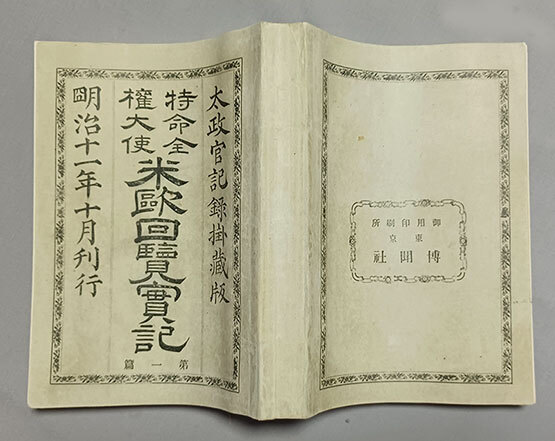 太政官記錄掛藏版
特命全
權大使
米歐回覽實記
第一篇
明治十一年十月刊行
御用印刷所
東京
博聞社